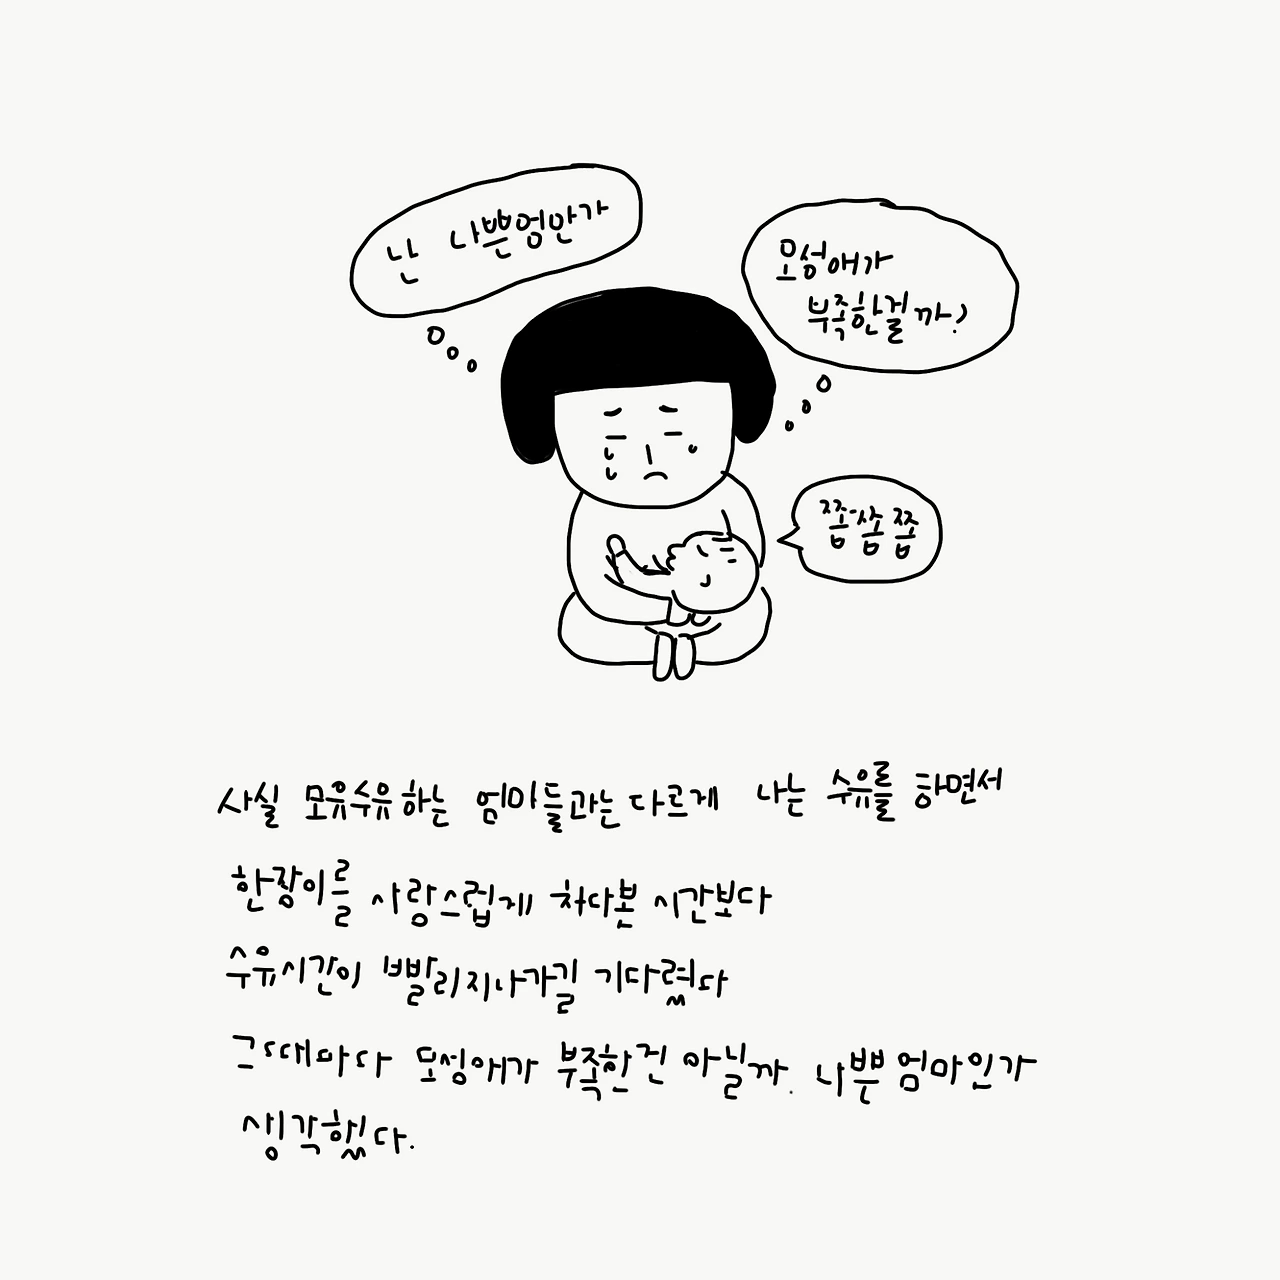 난 나쁜엄만가
모성애가
부족한걸까?
쫍쫍쫍
사실 모유수유하는 엄마들과는다르게 나는 수유를 하면서
한장이를 사랑스럽게 쳐다본 시간보다
수유시간이 빨리지나가길 기다렸다
그때마다 모성애가 부족한건 아닐까. 나쁜엄마인가
생각했다.